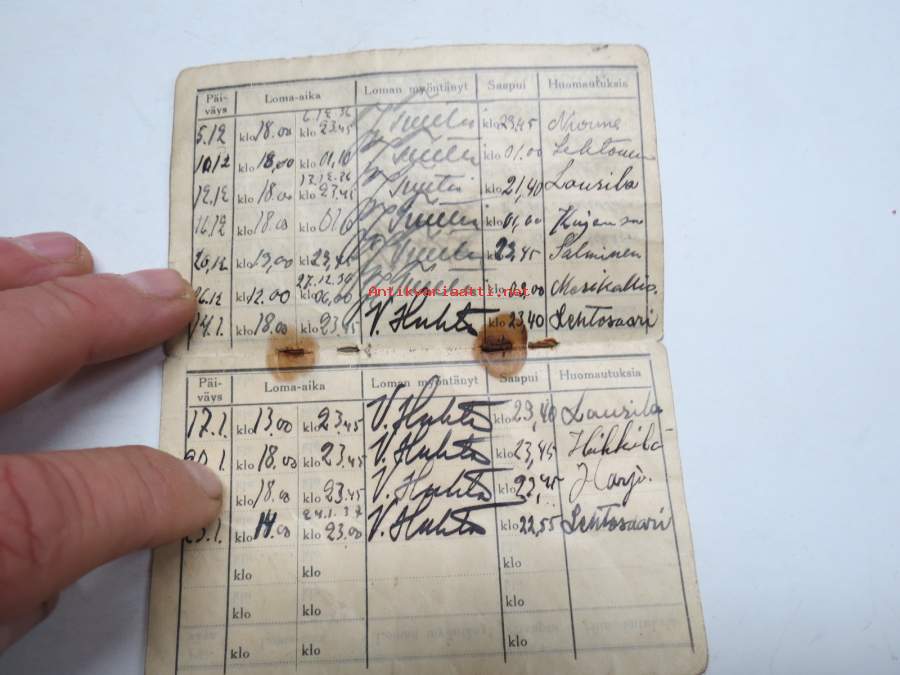 Päi- Loma-aika Loman myöntänyt Saapui Huomautuksia
väys
6.12.36
5.12 klo 18.00 klo 23.45 klo 23,45
10.12 klo 18,00 klo 01,10 klo 01.00 Lehtonen
12.12.36
12.12 klo 18.00 klo 23.45 klo 21,40 Laurila
16.12 klo 18.00 klo klo 01,00
20.12 klo 13,00 klo 23,45 klo 23,45 Salminen
27.12.36
26.12 klo 12.00 klo 06,00 klo
Antikvariaatti.net
14.1. klo 18.00 klo 23.45 V. Huhta klo 23.40 Lehtosaari
Päi- Loma-aika Loman myöntänyt Saapui Huomautuksia
väys
17.1. klo 13.00 klo 23.45 V. Huhta klo 23,40 Laurila
20.1. klo 18.00 klo 23.45 V. Huhta klo 23,45 Heikkilä
klo 18.00 klo 23.45 V. Huhta klo 22,45 Harju
24.1.37
23.1. klo 14.00 klo 23.00 V. Huhta klo 22,55 Lehtosaari
klo klo klo
klo klo klo
klo klo klo